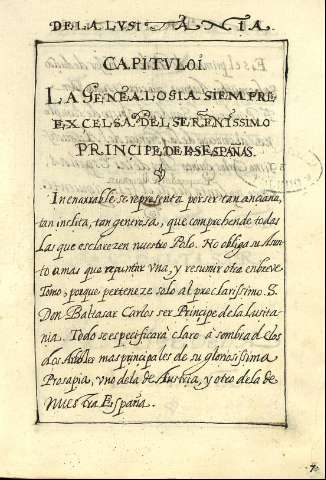 DE LA LUSITANIA.
CAPITULO I.
LA GENEALOGIA SIEMPRE
EXCELSA DEL SERENISSIMO
PRINCIPE DE LAS ESPAÑAS.
Inenarrable se representa por ser tan anciana,
tan inclita, tan generosa, que comprehende todas
las que esclarezen nuestro Polo. No obliga mi Asun-
to a mas que repuntar vna, y resumir otra en breve
Tomo, porque perteneze solo al preclarissimo S.
Don Baltasar Carlos ser Principe de la Lusita-
nia. Todo se especificarà claro à sombra de los
dos Arboles mas principales de su gloriosissima
Prosapia, vno de la de Austria, y otro de la de
nuestra España.